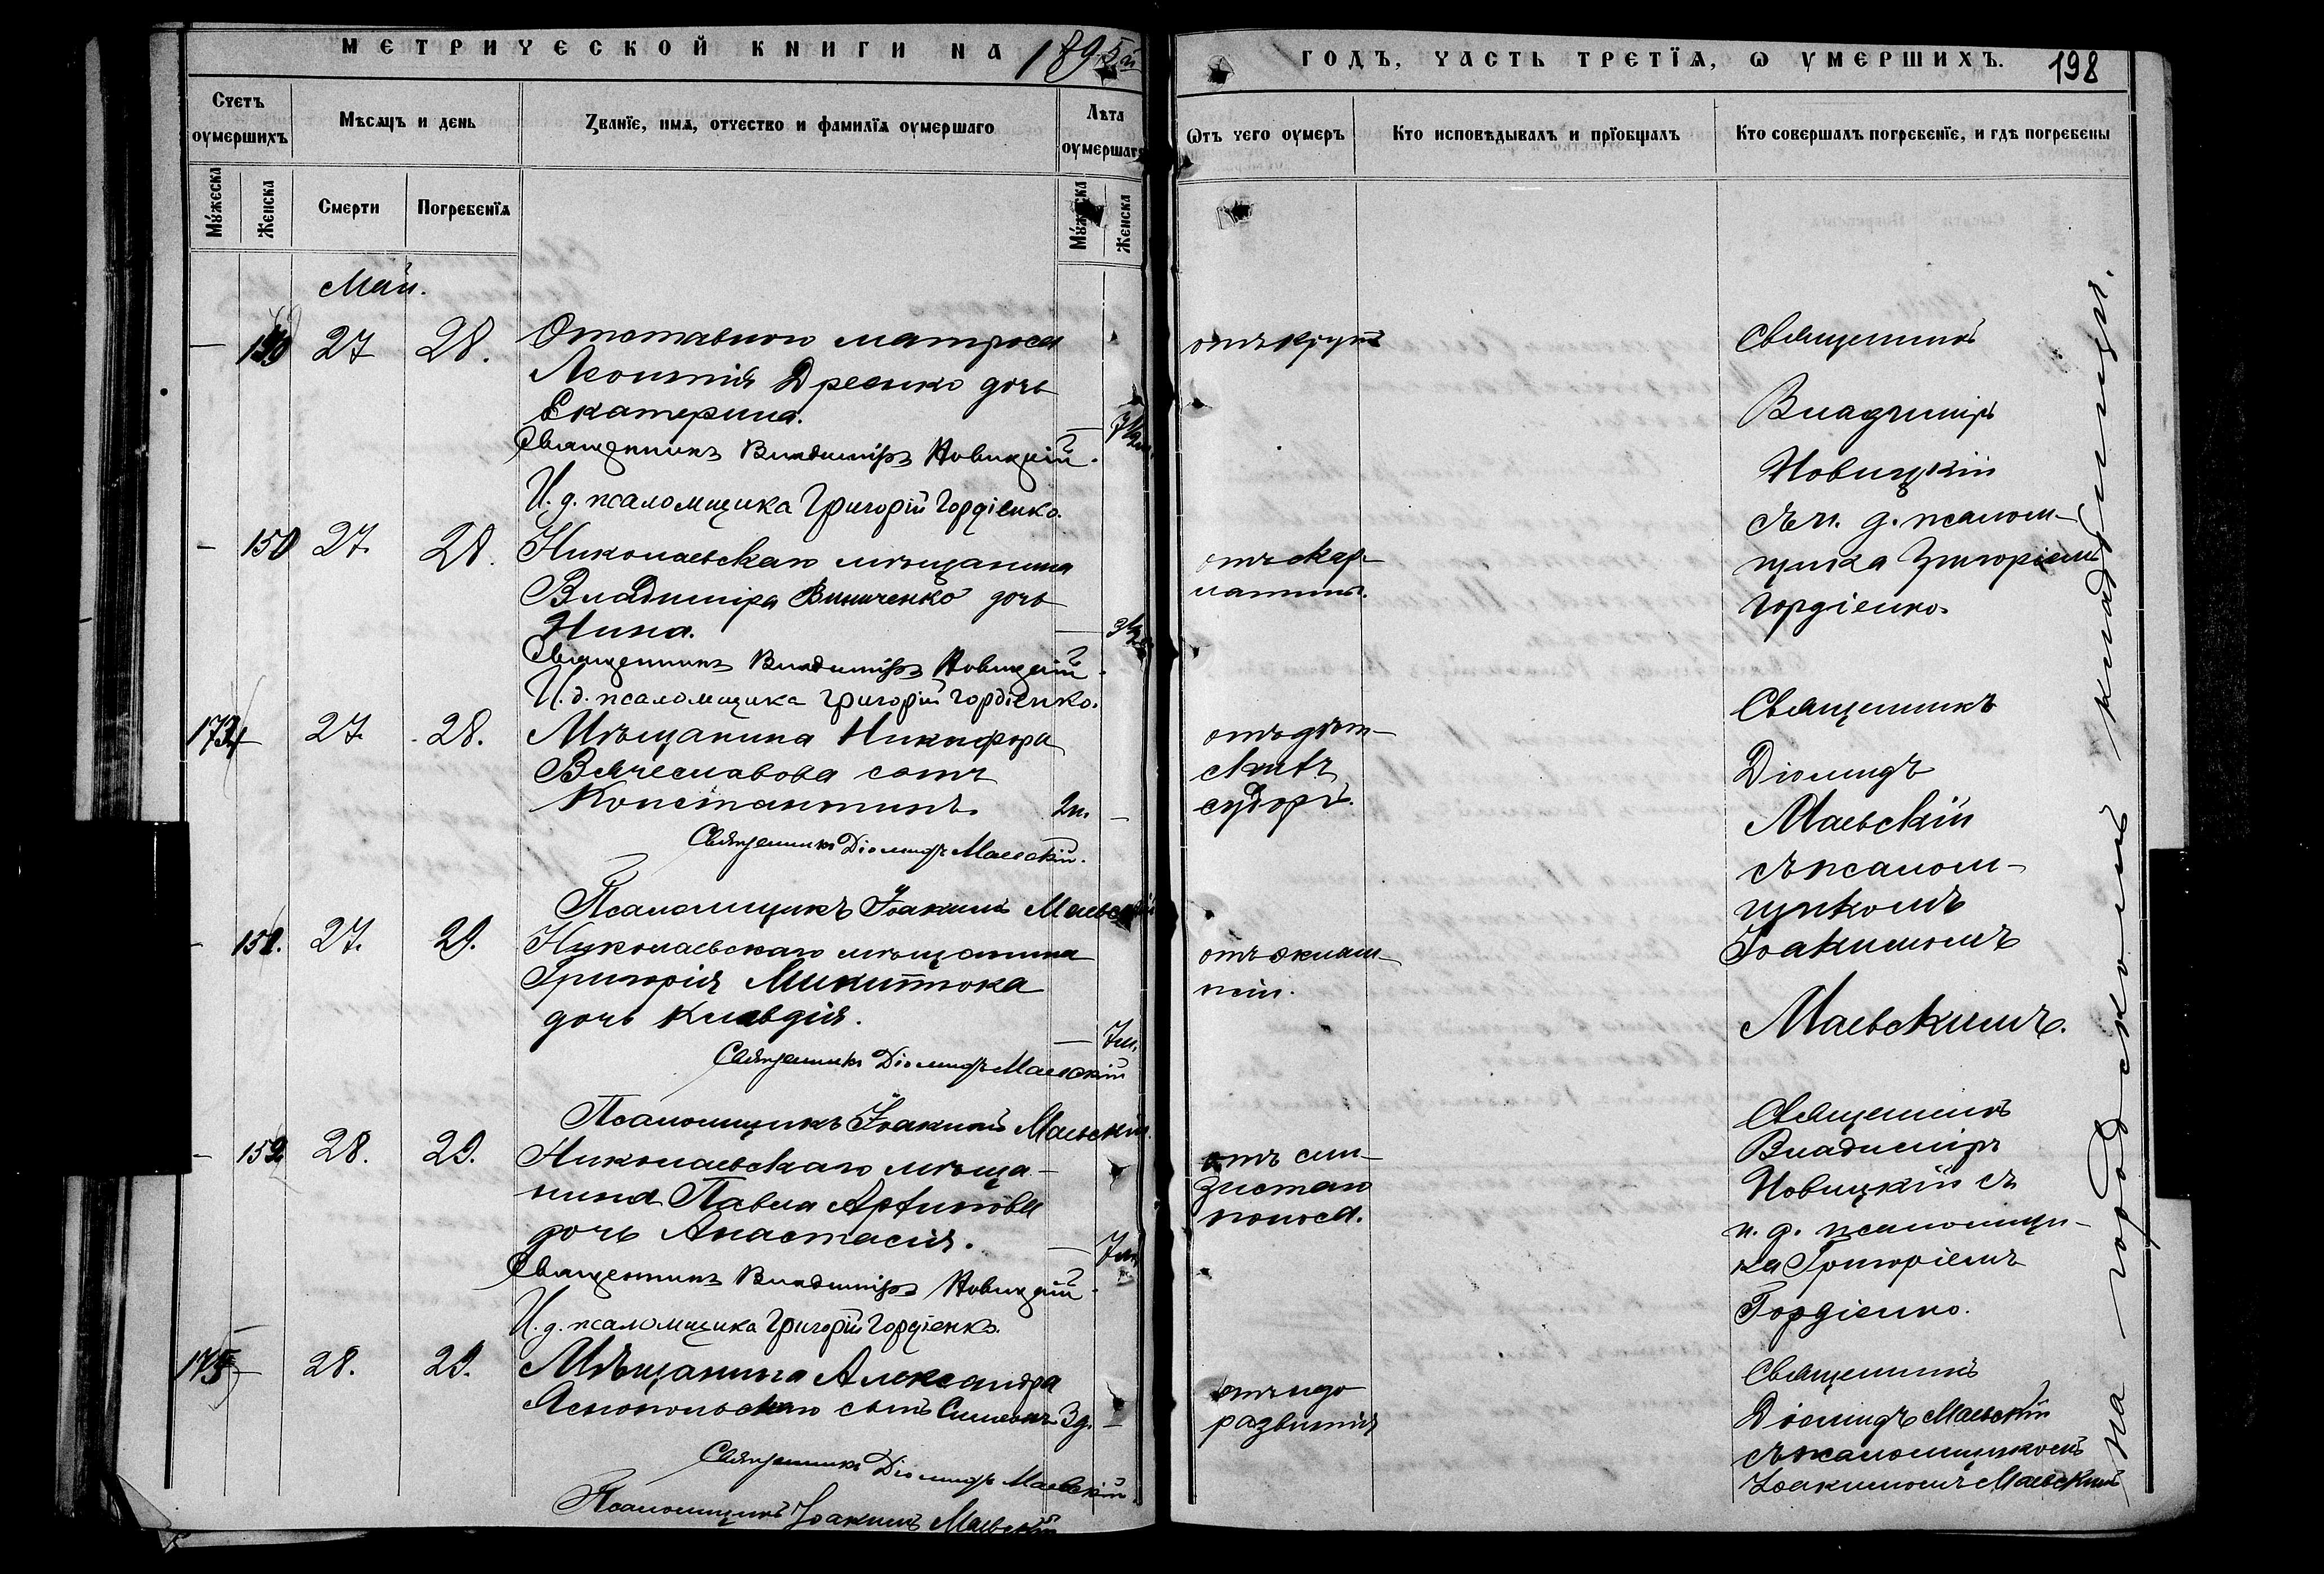 МЕТРИЧЕСКОЙ КНИГИ НА 1895й
ГОДЪ, ЧАСТЬ ТРЕТІЯ, Ѡ УМЕРШИХЪ.
198
Счетъ оумершихъ
Мѣсяцъ и день
Званіе, имя, отчество и фамилія оумершаго
Лѣта оумершаго
Мужеска
Женска
Смерти
Погребенія
Мужеска
Женска
Ѡтъ чего оумеръ
Кто исповѣдывалъ и пріобщалъ
Кто совершалъ погребеніе, и гдѣ погребены
Май.
27 28. Отставного матроса
Леонтія Дреенко дочь
Екатерина.
Священникъ Владиміръ Новицкій.
И. д. псаломщика Григорій Гордіенко.
отъ крупа
Священникъ
Владиміръ
Новицкій
съ и. д. псалом-
щика Григоріемъ
Гордіенко.
— 150 27. 28. Николаевскаго мѣщанина
Владиміра Виниченко дочь
Нина.
Священникъ Владиміръ Новицкій.
И. д. псаломщика Григорій Гордіенко.
отъ скар-
латины.
27. 28. Мѣщанина Никифора
Вячеславова сынъ
Константинъ. 2м. —
Священникъ Діомидъ Маевскій.
Псаломщикъ Іоакимъ Маевскій
отъ дѣт-
скихъ
судорг.
Священникъ
Діомидъ
Маевскій
съ псалом-
щикомъ
Іоакимомъ
Маевскимъ.
27. 29. Николаевскаго мѣщанина
Григорія Микитюка
дочь Клавдія. — 7м.
Священникъ Діомидъ Маевскій
Псаломщикъ Іоакимъ Маевскій.
отъ эклам-
псіи.
— 152 28. 29. Николаевскаго мѣща-
нина Павла
дочь Анастасія. — 7м
Священникъ Владиміръ Новицкій.
И. д. псаломщика Григорій Гордіенко.
поноса.
Священникъ
Владиміръ
Новицкій съ
и. д. псаломщи-
ка Григоріемъ
Гордіенко.
175 — 28. 29. Мѣщанина Александра
Яснопольскаго сынъ Симеонъ 3д. —
Священникъ Діомидъ Маевскій.
Псаломщикъ Іоакимъ Маевскій
отъ недо
развитія
Священникъ
Діомидъ Маевскій
съ псаломщикомъ
Іоакимомъ Маевскимъ
На городскомъ кладбищѣ.